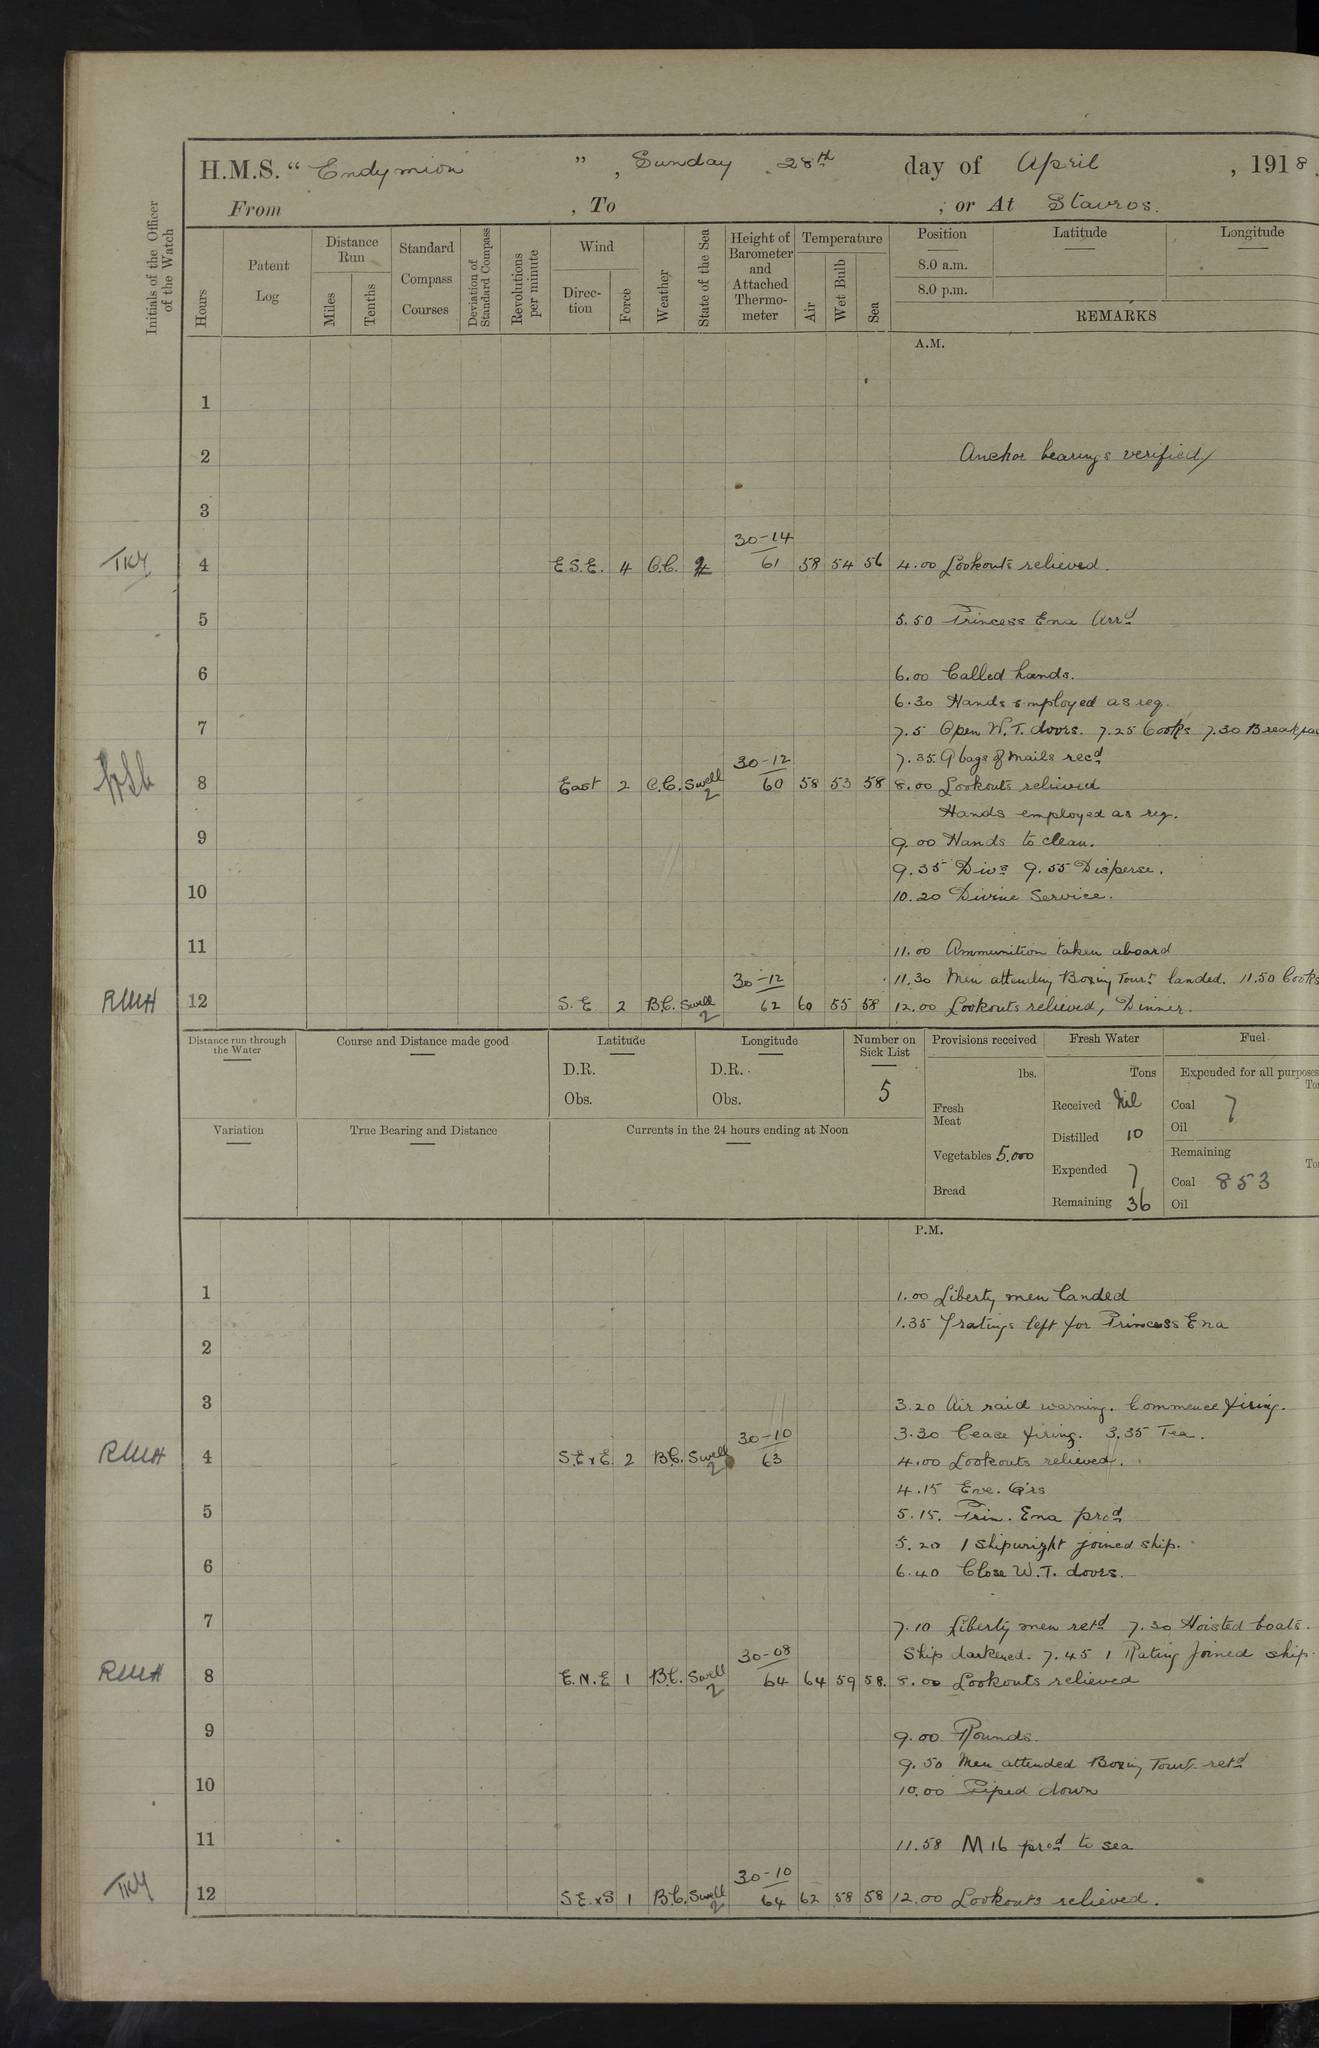 H.M.S. "Endymion", Sunday 28th day of April, 1918.
From , To ; or At Stavros.
Initials of the Officer of the Watch
Hours
Patent Log
Distance Run
Miles
Tenths
Standard Compass Courses
Deviation of Standard Compass
Revolutions per minute
Wind
Direction
Force
Weather
State of the Sea
Height of Barometer and Attached Thermometer
Temperature
Air
Wet Bulb
Sea
Position
8.0 a.m.
8.0 p.m.
Latitude
Longitude
REMARKS
A.M.
1
2 Anchor bearings verified/
3
30-14
4 E.S.E. 4 61 58 54 56 4.00 Lookouts relieved.
5 5.50 Princess Ena Arrd
6 6.00 Called hands.
6.30 Hands employed as req.
7 7.5 Open W.T. doors. 7.25 Cooks 7.30
30-12 7.35 9 bags of mails recd
8 East 2 Swell 2 60 58 53 58 8.00 Lookouts relieved
Hands employed as req.
9 9.00 Hands to clean.
9.35 Divs 9.55 Disperse.
10 10.20 Divine Service.
11 11.00 Ammunition taken aboard
30-12 11.30 Men attending Boxing Tourt landed. 11.50 Cooks
RWH 12 S.E 2 B.C. Swell 2 62 60 55 58 12.00 Lookouts relieved, Dinner.
Distance run through the Water
Course and Distance made good
Latitude
D.R.
Obs.
Longitude
D.R.
Obs.
Number on Sick List
5
Provisions received
lbs.
Fresh Meat
Vegetables 5.000
Bread
Fresh Water
Tons
Received Nil
Distilled 10
Expended 7
Remaining 36
Fuel
Expended for all purposes
Coal 7
Oil
Remaining
Coal 853
Oil
Variation
True Bearing and Distance
Currents in the 24 hours ending at Noon
P.M.
1 1.00 Liberty men landed
1.35 7 ratings left for Princess Ena
2
3 3.20 Air raid warning. Commence firing.
30-10 3.30 Cease firing. 3.35 Tea.
RWH 4 S.E x E. 2 B.C. Swell 2 63 4.00 Lookouts relieved.
4.15 Eve. Qrs
5 5.15. Prin. Ena procd
5.20 1 Shipwright joined ship.
6 6.40 Close W.T. doors.
7 7.10 Liberty men retd 7.30 Hoisted boats.
30-08 Ship darkened. 7.45 1 Rating joined ship.
RWH 8 E.N.E 1 B.C. Swell 2 64 64 59 58. 8.00 Lookouts relieved
9 9.00 Rounds.
9.50 Men attended Boxing Tourt retd
10 10.00 Piped down
11 11.58 M16 procd to sea
30-10
12 S.E. x S 1 B.C. Swell 2 64 62 58 58 12.00 Lookouts relieved.